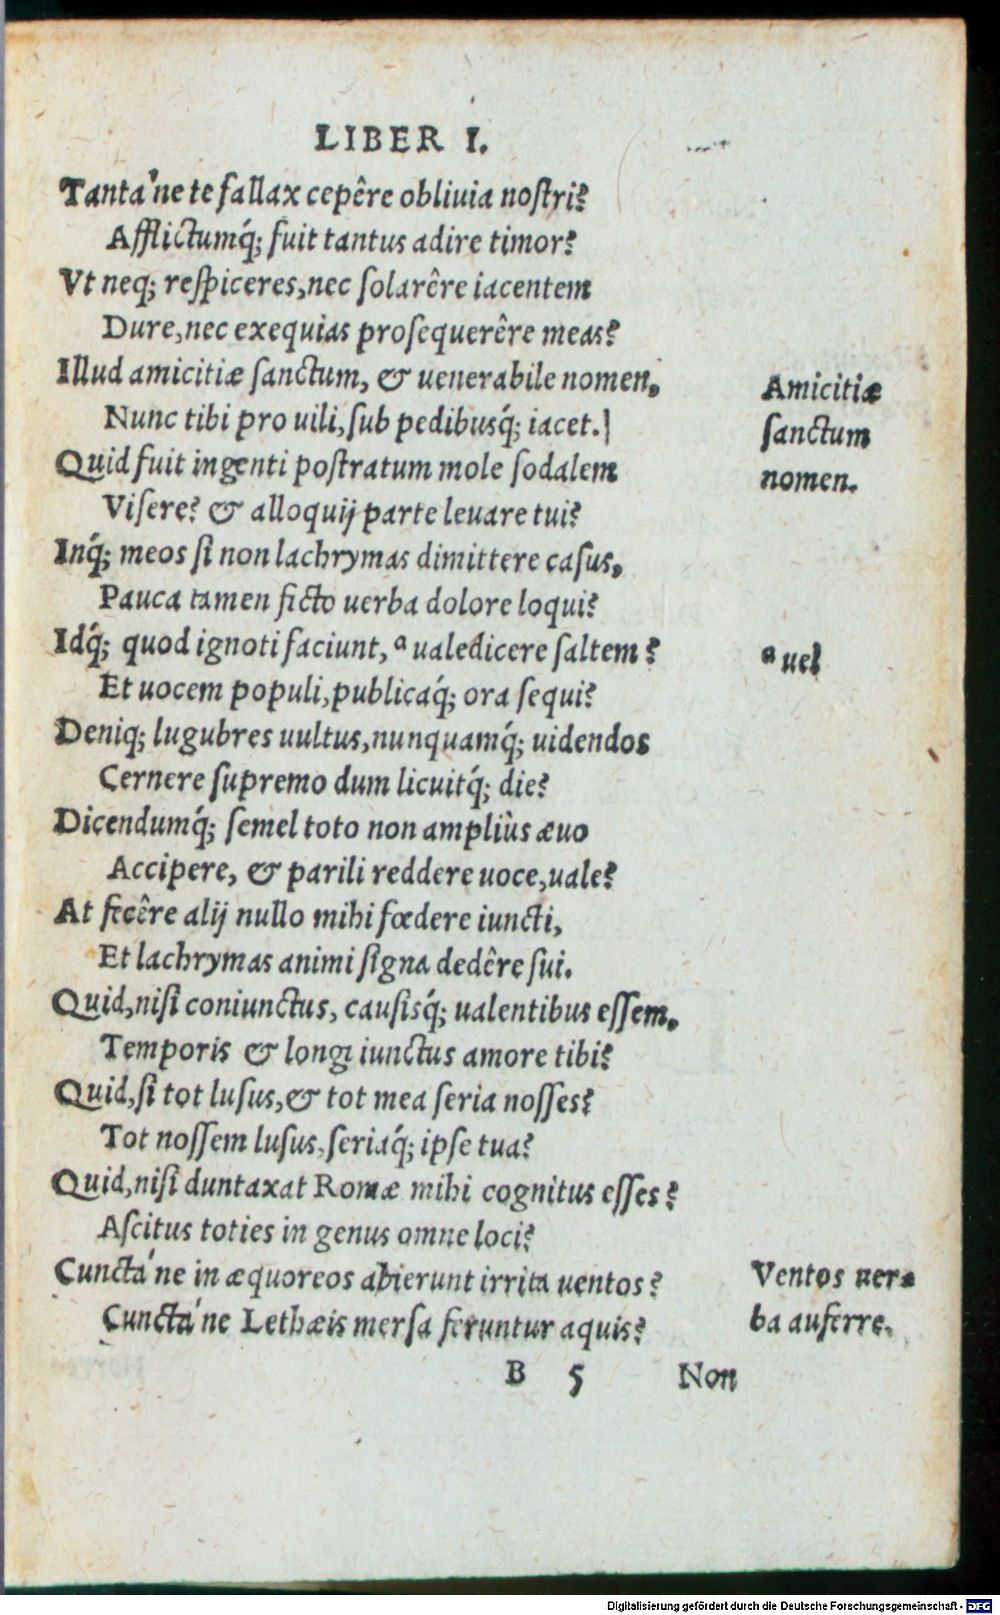 LIBER I.
Tanta'ne te fallax cepêre obliuia nostri?
Afflictumq́; fuit tantus adire timor?
Vt neq; respiceres, nec solarêre iacentem
Dure, nec exequias prosequerêre meas?
Illud amicitiæ sanctum, & uenerabile nomen,
Nunc tibi pro uili, sub pedibusq́; iacet.]
Quid fuit ingenti postratum mole sodalem
Visere? & alloquij parte leuare tui?
Inq́; meos si non lachrymas dimittere casus,
Pauca tamen ficto uerba dolore loqui?
Idq́; quod ignoti faciunt, ª ualedicere saltem?
Et uocem populi, publicaq́; ora sequi?
Deniq; lugubres uultus, nunquamq́; uidendos
Cernere supremo dum licuitq́; die?
Dicendumq́; semel toto non ampliùs æuo
Accipere, & parili reddere uoce, uale?
At fecêre alij nullo mihi fœdere iuncti,
Et lachrymas animi signa dedêre sui.
Quid, nisi coniunctus, causisq́; ualentibus essem,
Temporis & longi iunctus amore tibi?
Quid, si tot lusus, & tot mea seria nosses?
Tot nossem lusus, seriaq́; ipse tua?
Quid, nisi duntaxat Romæ mihi cognitus esses?
Ascitus toties in genus omne loci?
Cuncta'ne in æquoreos abierunt irrita uentos?
Cuncta'ne Lethæis mersa feruntur aquis?
B 5 Non
Amicitiæ
sanctum
nomen.
ª uel
Ventos uer-
ba auferre.
Digitalisierung gefördert durch die Deutsche Forschungsgemeinschaft - DFG